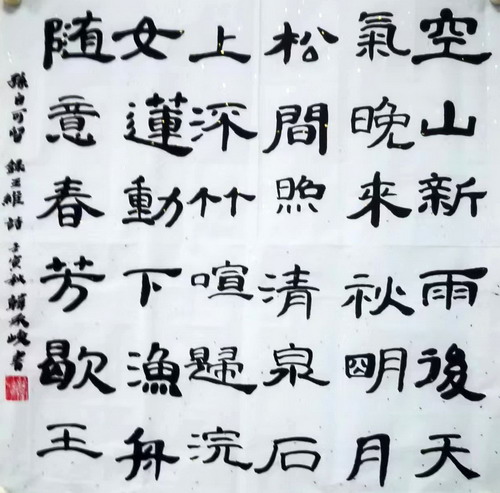 空山新雨後天
氣晚来秋明月
松間照清泉石
上深竹喧歸浣
女蓮動下漁舟
随意春芳歇王
孫自可留 録王維詩 壬寅秋 書